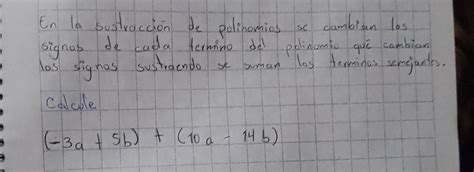 En la sustracción de polinomios se cambian los
signos de cada termino del polinomio que cambian
los signos sustraendo se suman los terminos semejantes.
Calcule
(-3a + 5b) + (10a - 14b)